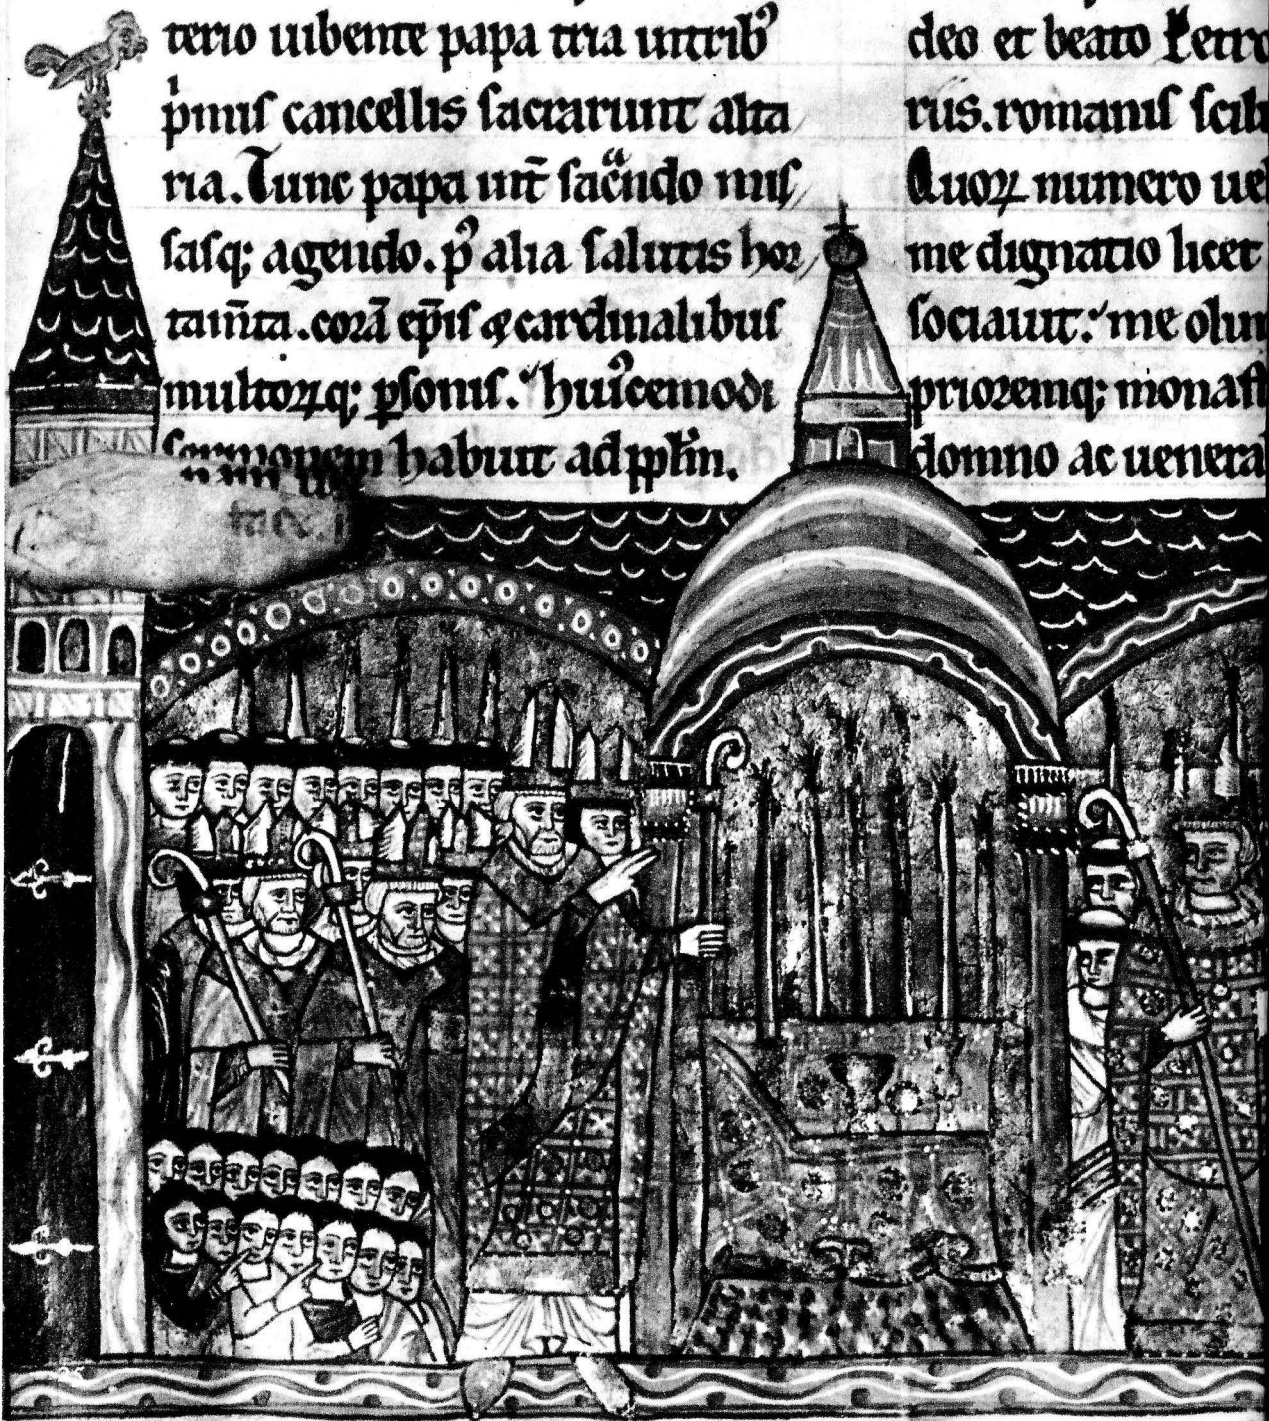 terio uibente papa tria uitrib᾽
p̍mis cancellis sacrarunt alta
ria. Tunc papa int̄ sac̃ndo mis
sasq; agendo. p᾽ alia salutis hor
tam̄ta. corā ep̄is ⁊ cardinalibus
multoꝝq; ꝑsonis. hui᾽cemodi
sermonem habuit ad pplm̄.
deo et beato Petro
rus. romanis scili
Quoꝝ numero ue
me dignatio licet
sociauit. me olim
prioremq; monast
domno ac uenera